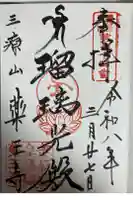 奉拝
令和八年
三月廿七日
瑠璃光殿
三療山
薬王寺